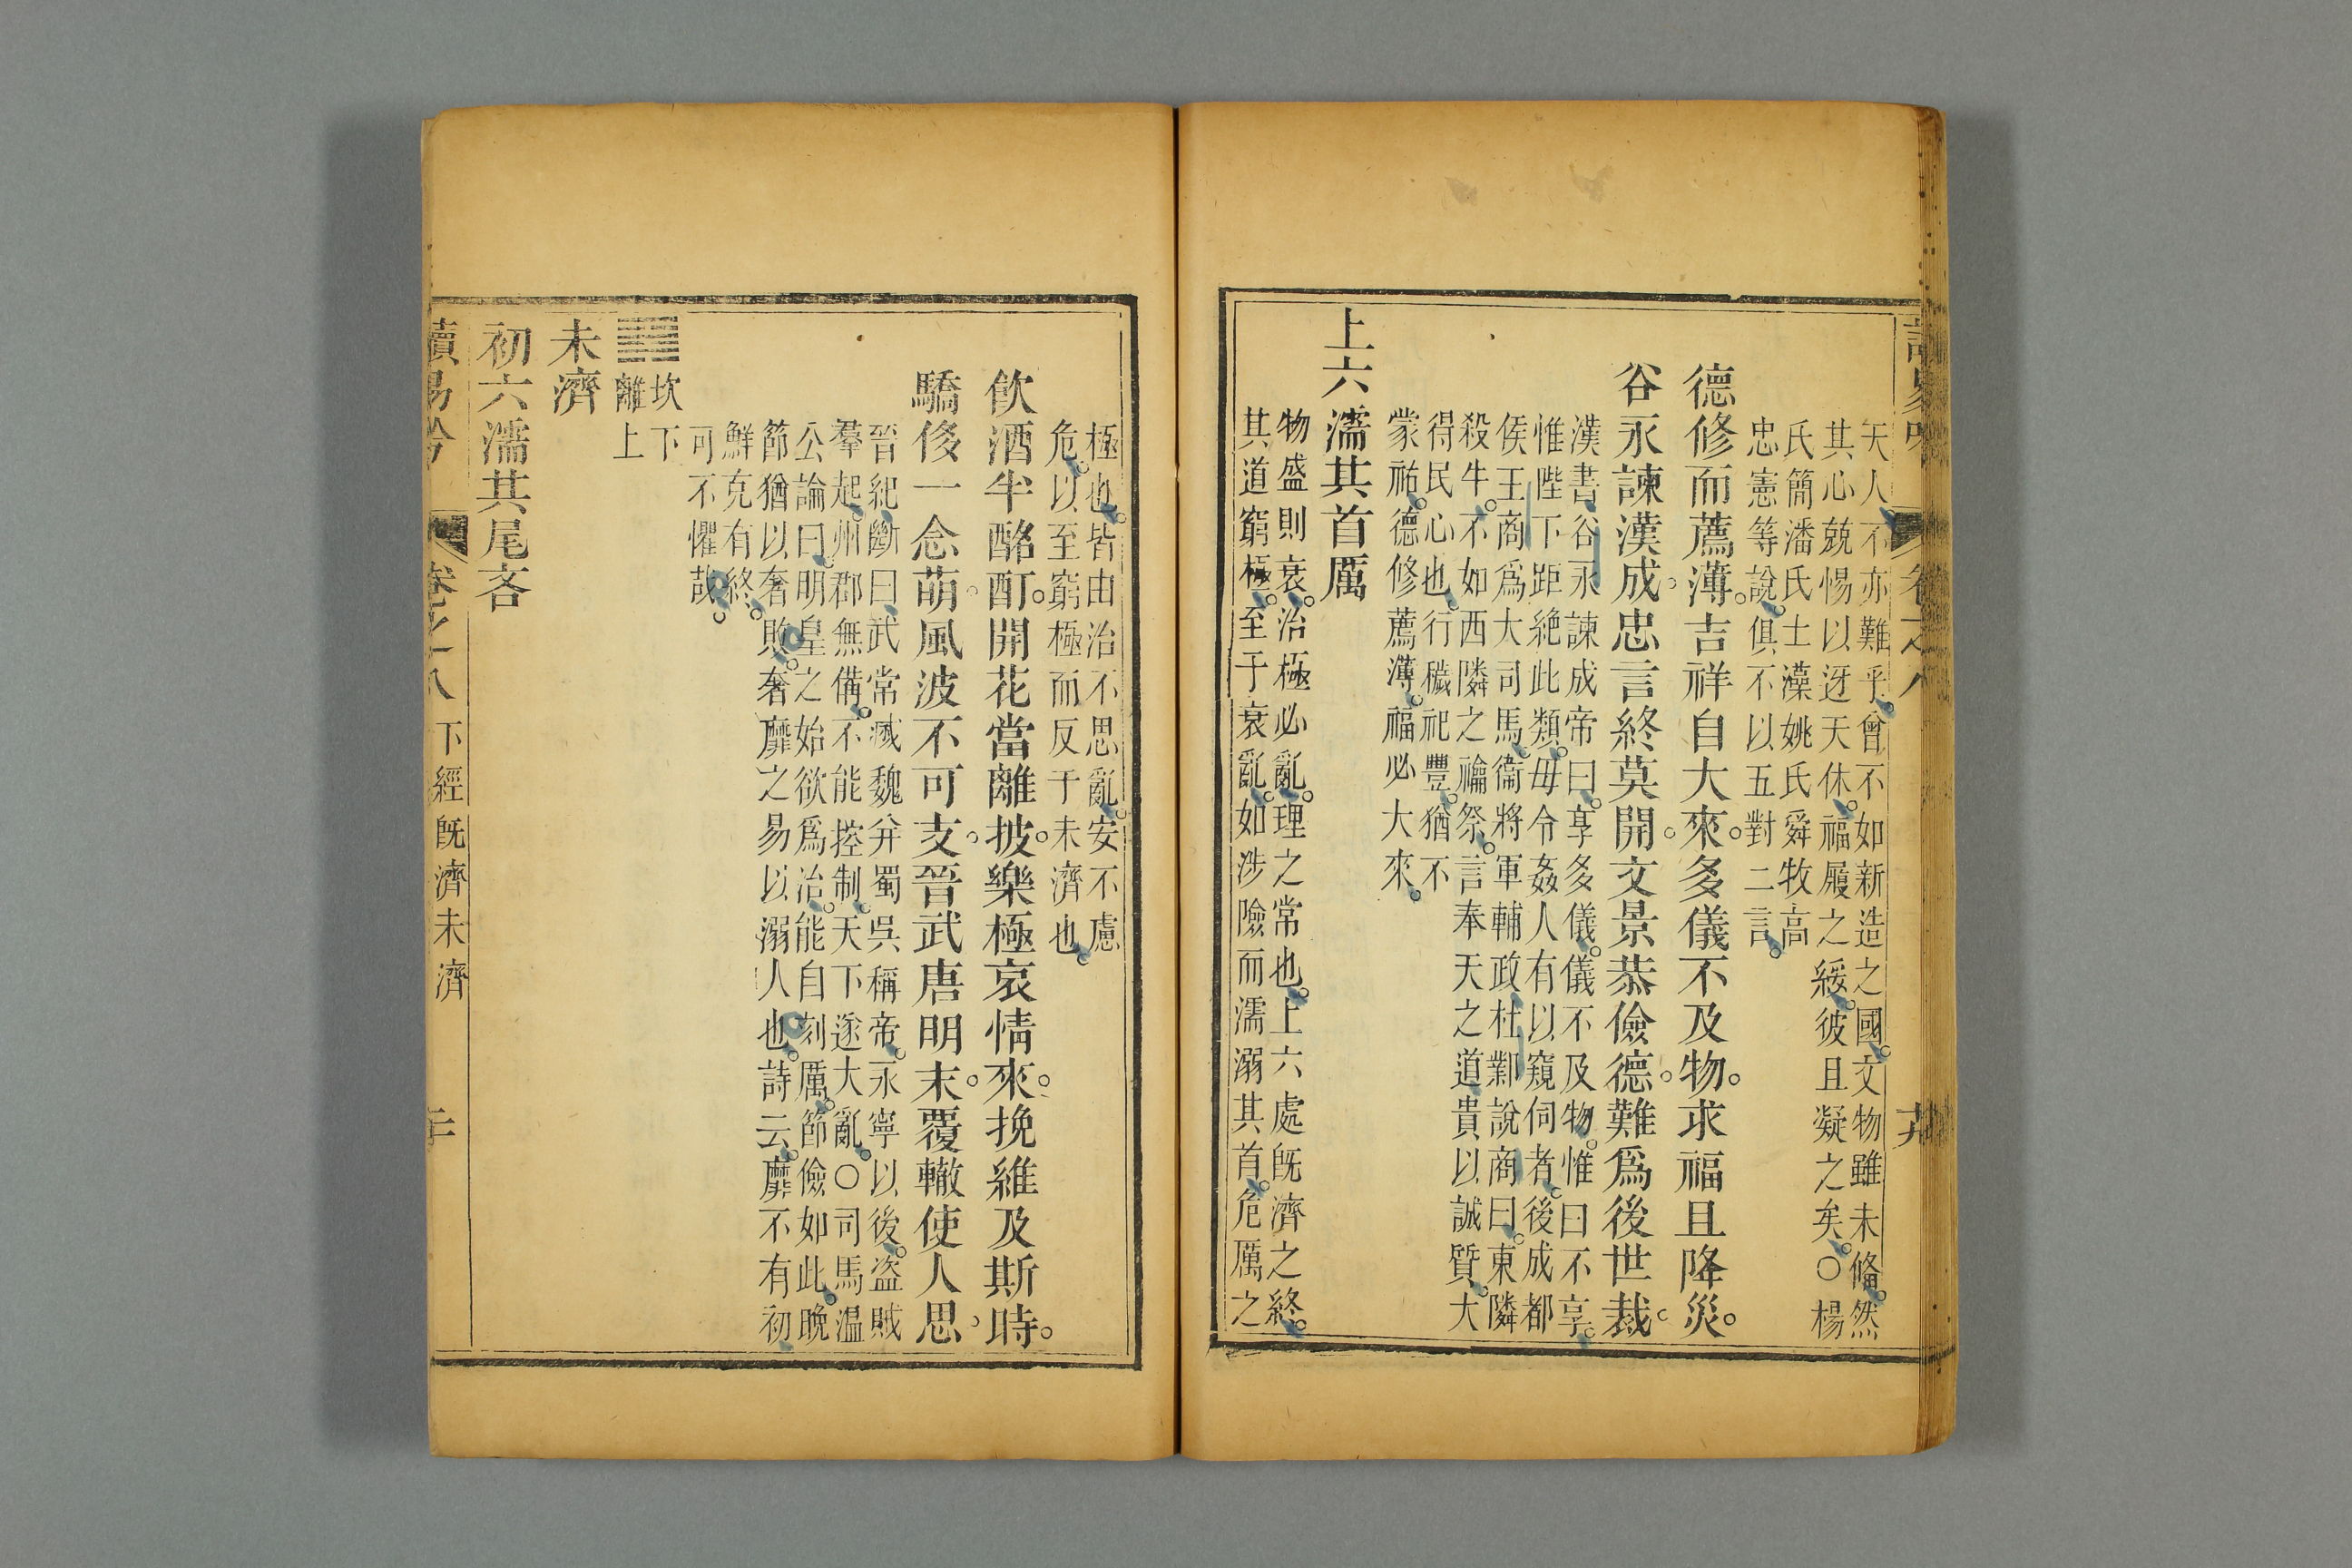 天人。不亦難乎。曾不如新造之國。文物雖未脩。然
其心兢惕以迓天休。福履之綏。彼且凝之矣。○楊
氏簡潘氏士藻姚氏舜牧高
忠憲等說。俱不以五對二言。
德修而薦薄。吉祥自大來。多儀不及物。求福且降災。
谷永諫漢成。忠言終莫開。文景恭儉德。難爲後世裁。
漢書。谷永諫成帝曰。享多儀。儀不及物。惟曰不享。
惟陛下距絶此類。毋令姦人有以窺伺者。後成都
侯王商爲大司馬。衞將軍輔政。杜鄴說商曰。東隣
殺牛。不如西隣之禴祭。言奉天之道。貴以誠質。大
得民心也。行穢祀豐。猶不
蒙祐。德修薦薄。福必大來。
上六濡其首厲
物盛則衰。治極必亂。理之常也。上六處既濟之終。
其道窮極。至于衰亂。如涉險而濡溺其首。危厲之
極也。皆由治不思亂。安不慮
危。以至窮極而反于未濟也。
飲酒半酩酊。開花當離披。樂極哀情來。挽維及斯時。
驕侈一念萌。風波不可支。晉武唐明末。覆轍使人思。
晉紀斷曰。武常滅魏幷蜀吳稱帝。永寧以後。盜賊
羣起。州郡無備。不能控制。天下遂大亂。○司馬温
公論曰。明皇之始欲爲冶。能自刻厲。節儉如此。晚
節猶以奢敗。奢靡之易以溺人也。詩云。靡不有初
鮮克有終。
可不懼哉。
坎下
離上
未濟
初六濡其尾吝
卷之八 下經既濟未濟